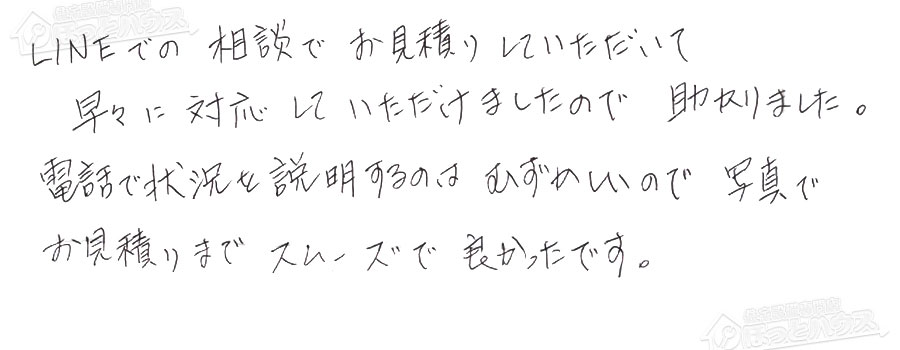 LINEでの 相談で お見積りしていただいて
早々に 対応 して いただけましたので 助かりました。
電話で状況を説明するのは むずかしいので 写真で
お見積りまで スムーズで 良かったです。
住宅設備専門店
ほっとハウス
住宅設備専門店
ほっとハウス